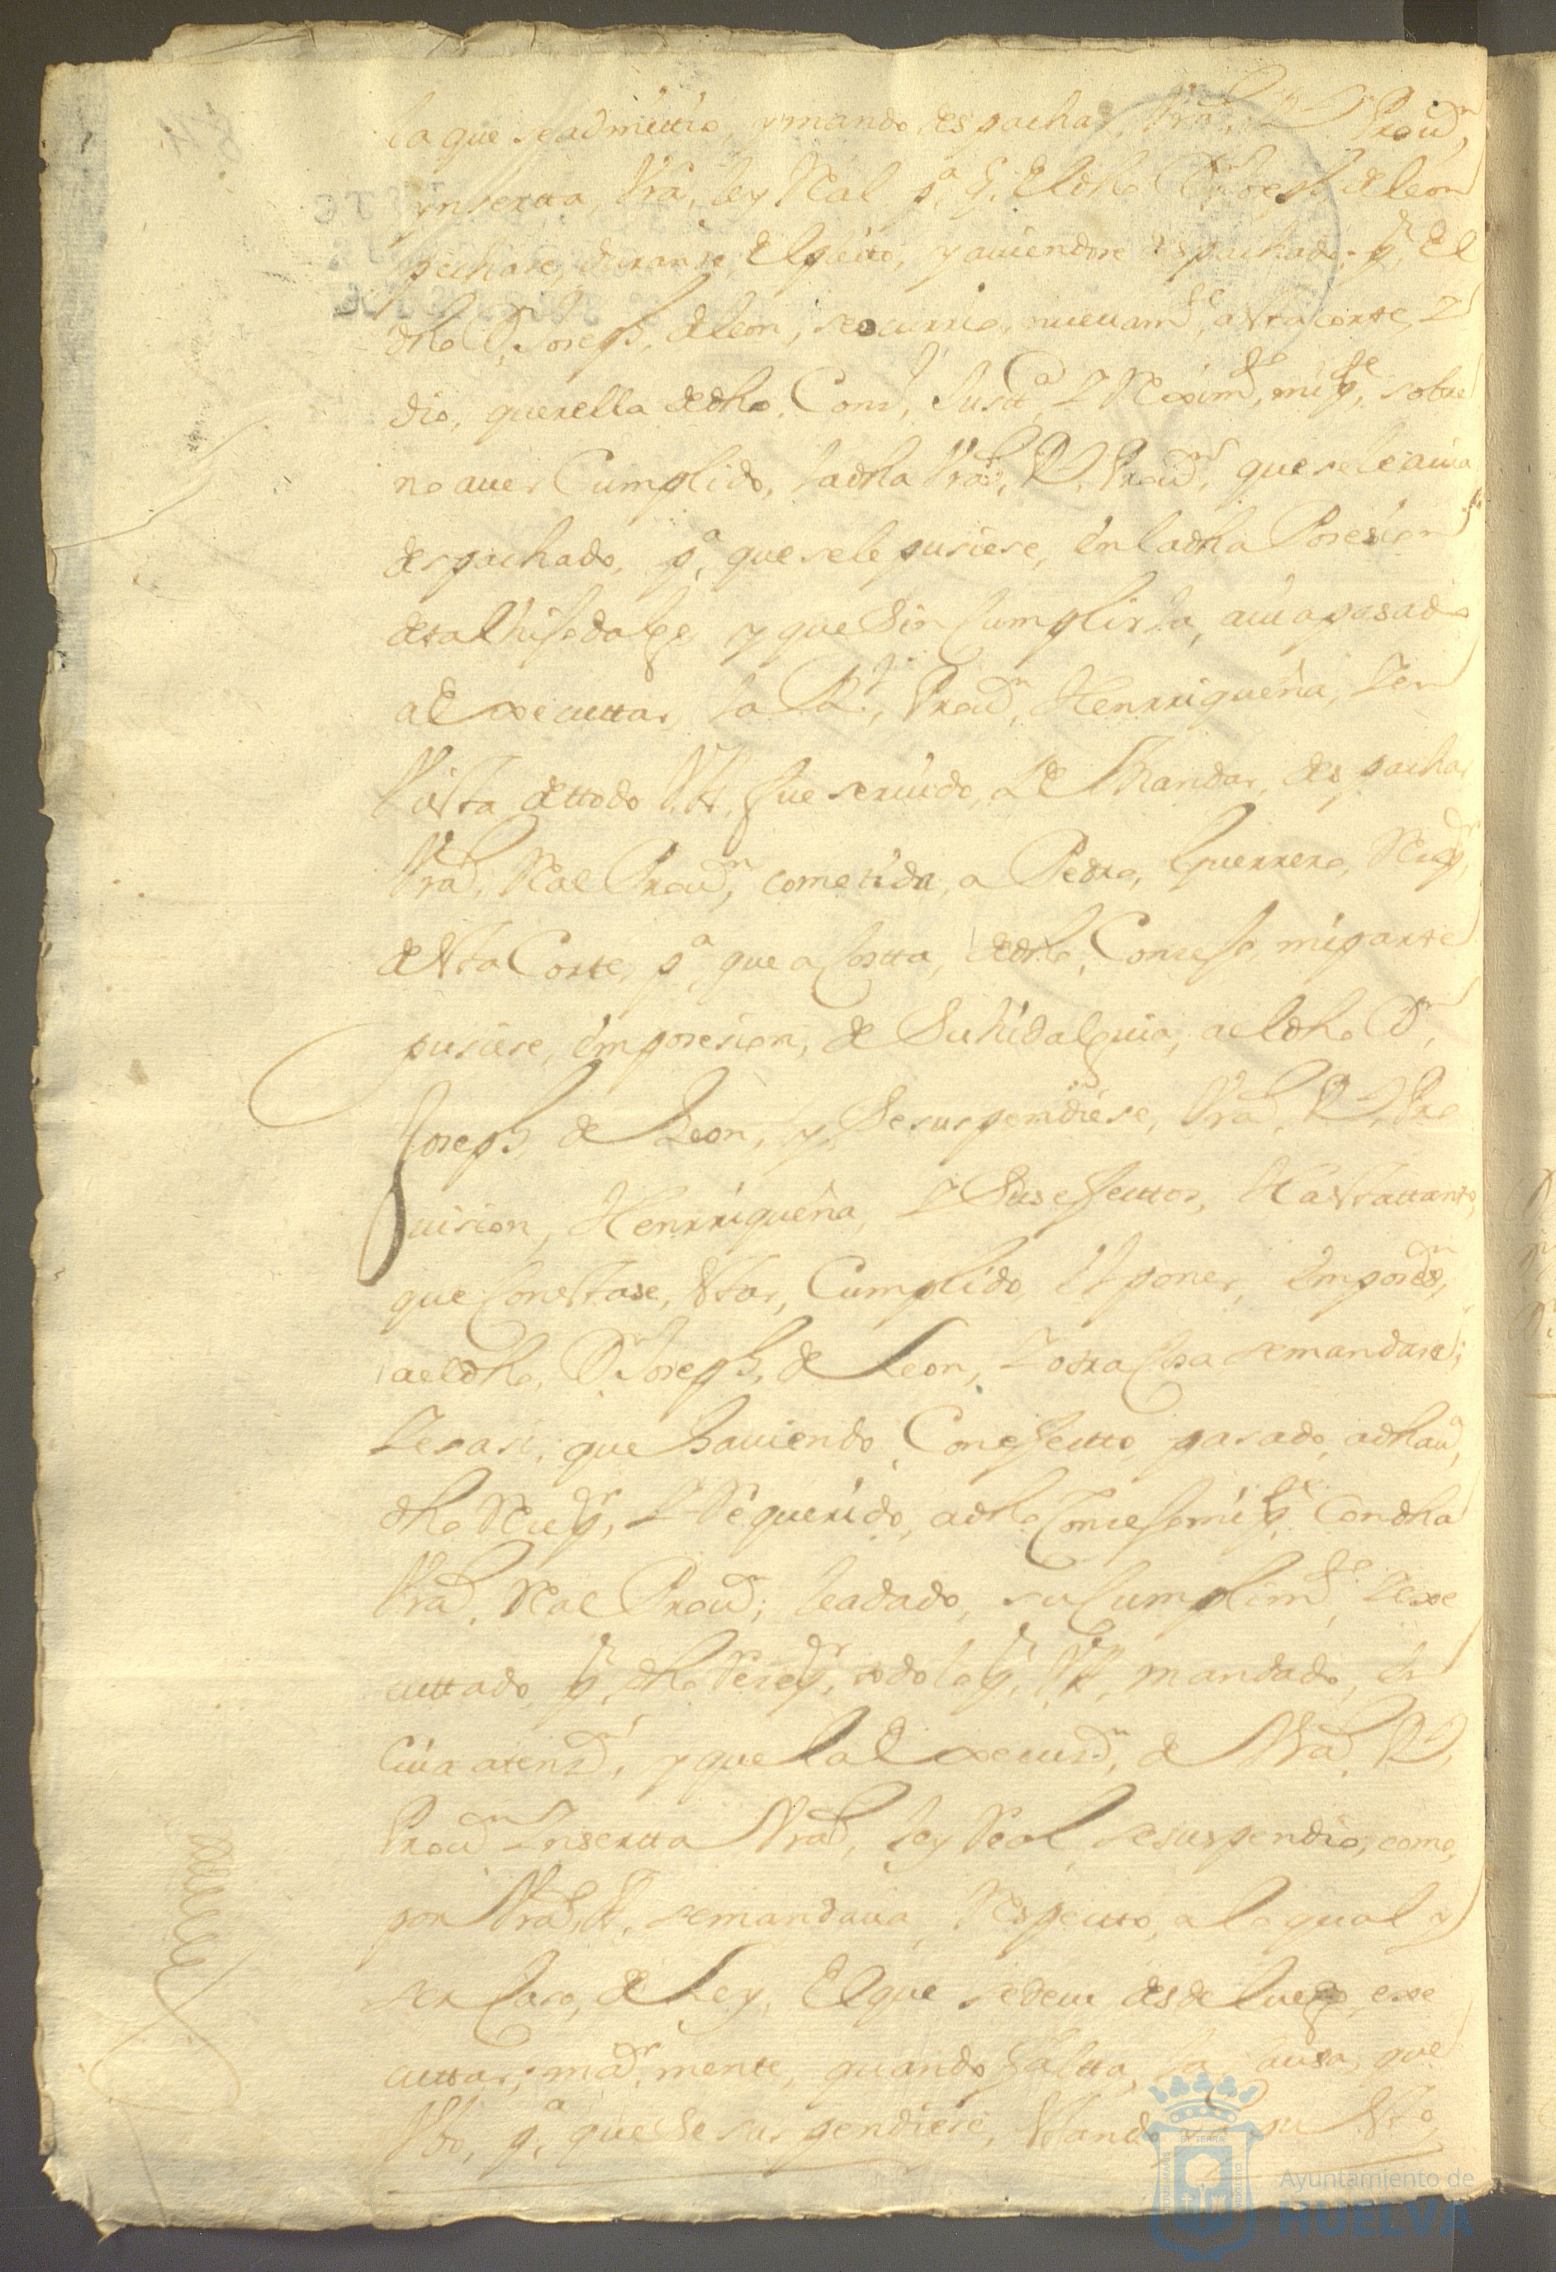 la que se admittio, y mando despachar, Vra. Rl Proun,
ynsertta, Vra, ley Real pa. q. El dho Dn Joseph de leon
pechase, durante, El pleito, y auiendose despachado. pr. El
dho Dn Joseph, de leon, se ocurrio, nueuamte, a Vta corte, Y
dio, querella de dho. Conzo, Justta, Y Reximto, mi pte, sobre
no auer Cumplido, la dha Vra, Rl, Proun, que se le auia
despachado, pa, que se le pusiese, en la dha Posesion
de tal hijodalgo, y que Sin Cumplirla, auia pasado
a Executtar, la Rl, Proun, Henrriqueña, Y en
Vista de ttodo V.A. fue seruido, de Mandar, despachar
Vra, Real Proun, cometida, a Pedro, Guerrero, Recepr,
de Vta Corte, pa, que a Costta, de dho, Concejo, mi parte
pusiese, en posesion, de Su hidalguia, a el dho Dn,
Joseph de Leon, y Se suspendiese, Vra, Rl, Pro
uision, Henrriqueña, Y Sus efecttos, Hasta ttanto,
que Constase, Vtar, Cumplido, El poner, En posesn,
a el dho, Dn Joseph, de Leon, Y otra Cosa se mandase;
Y es asi, que hauiendo, Con efectto, pasado, a dha ua,
dho Recepr, Y Requerido, a dho Concejo mi pte Con dha
Vra, Real Proun; lea dado, su Cumplimto, Y exe
cuttado, pr, dho Recepr, todo lo q, V.A, mandado, En
Cuia atenzn, y que la Execuzn, de Vra, Rl,
Proun Ynsertta Vra, ley Real, se suspendio, como,
por Vra, A. se mandaua, Respectto, a lo qual y
ser Caso, de Ley, El que se deue desde luego, exe
cuttar, mayrmente, quando faltta, la causa, que
Vbo, pa, que Se suspendiese, Vtando
Ayuntamiento de
HUELVA